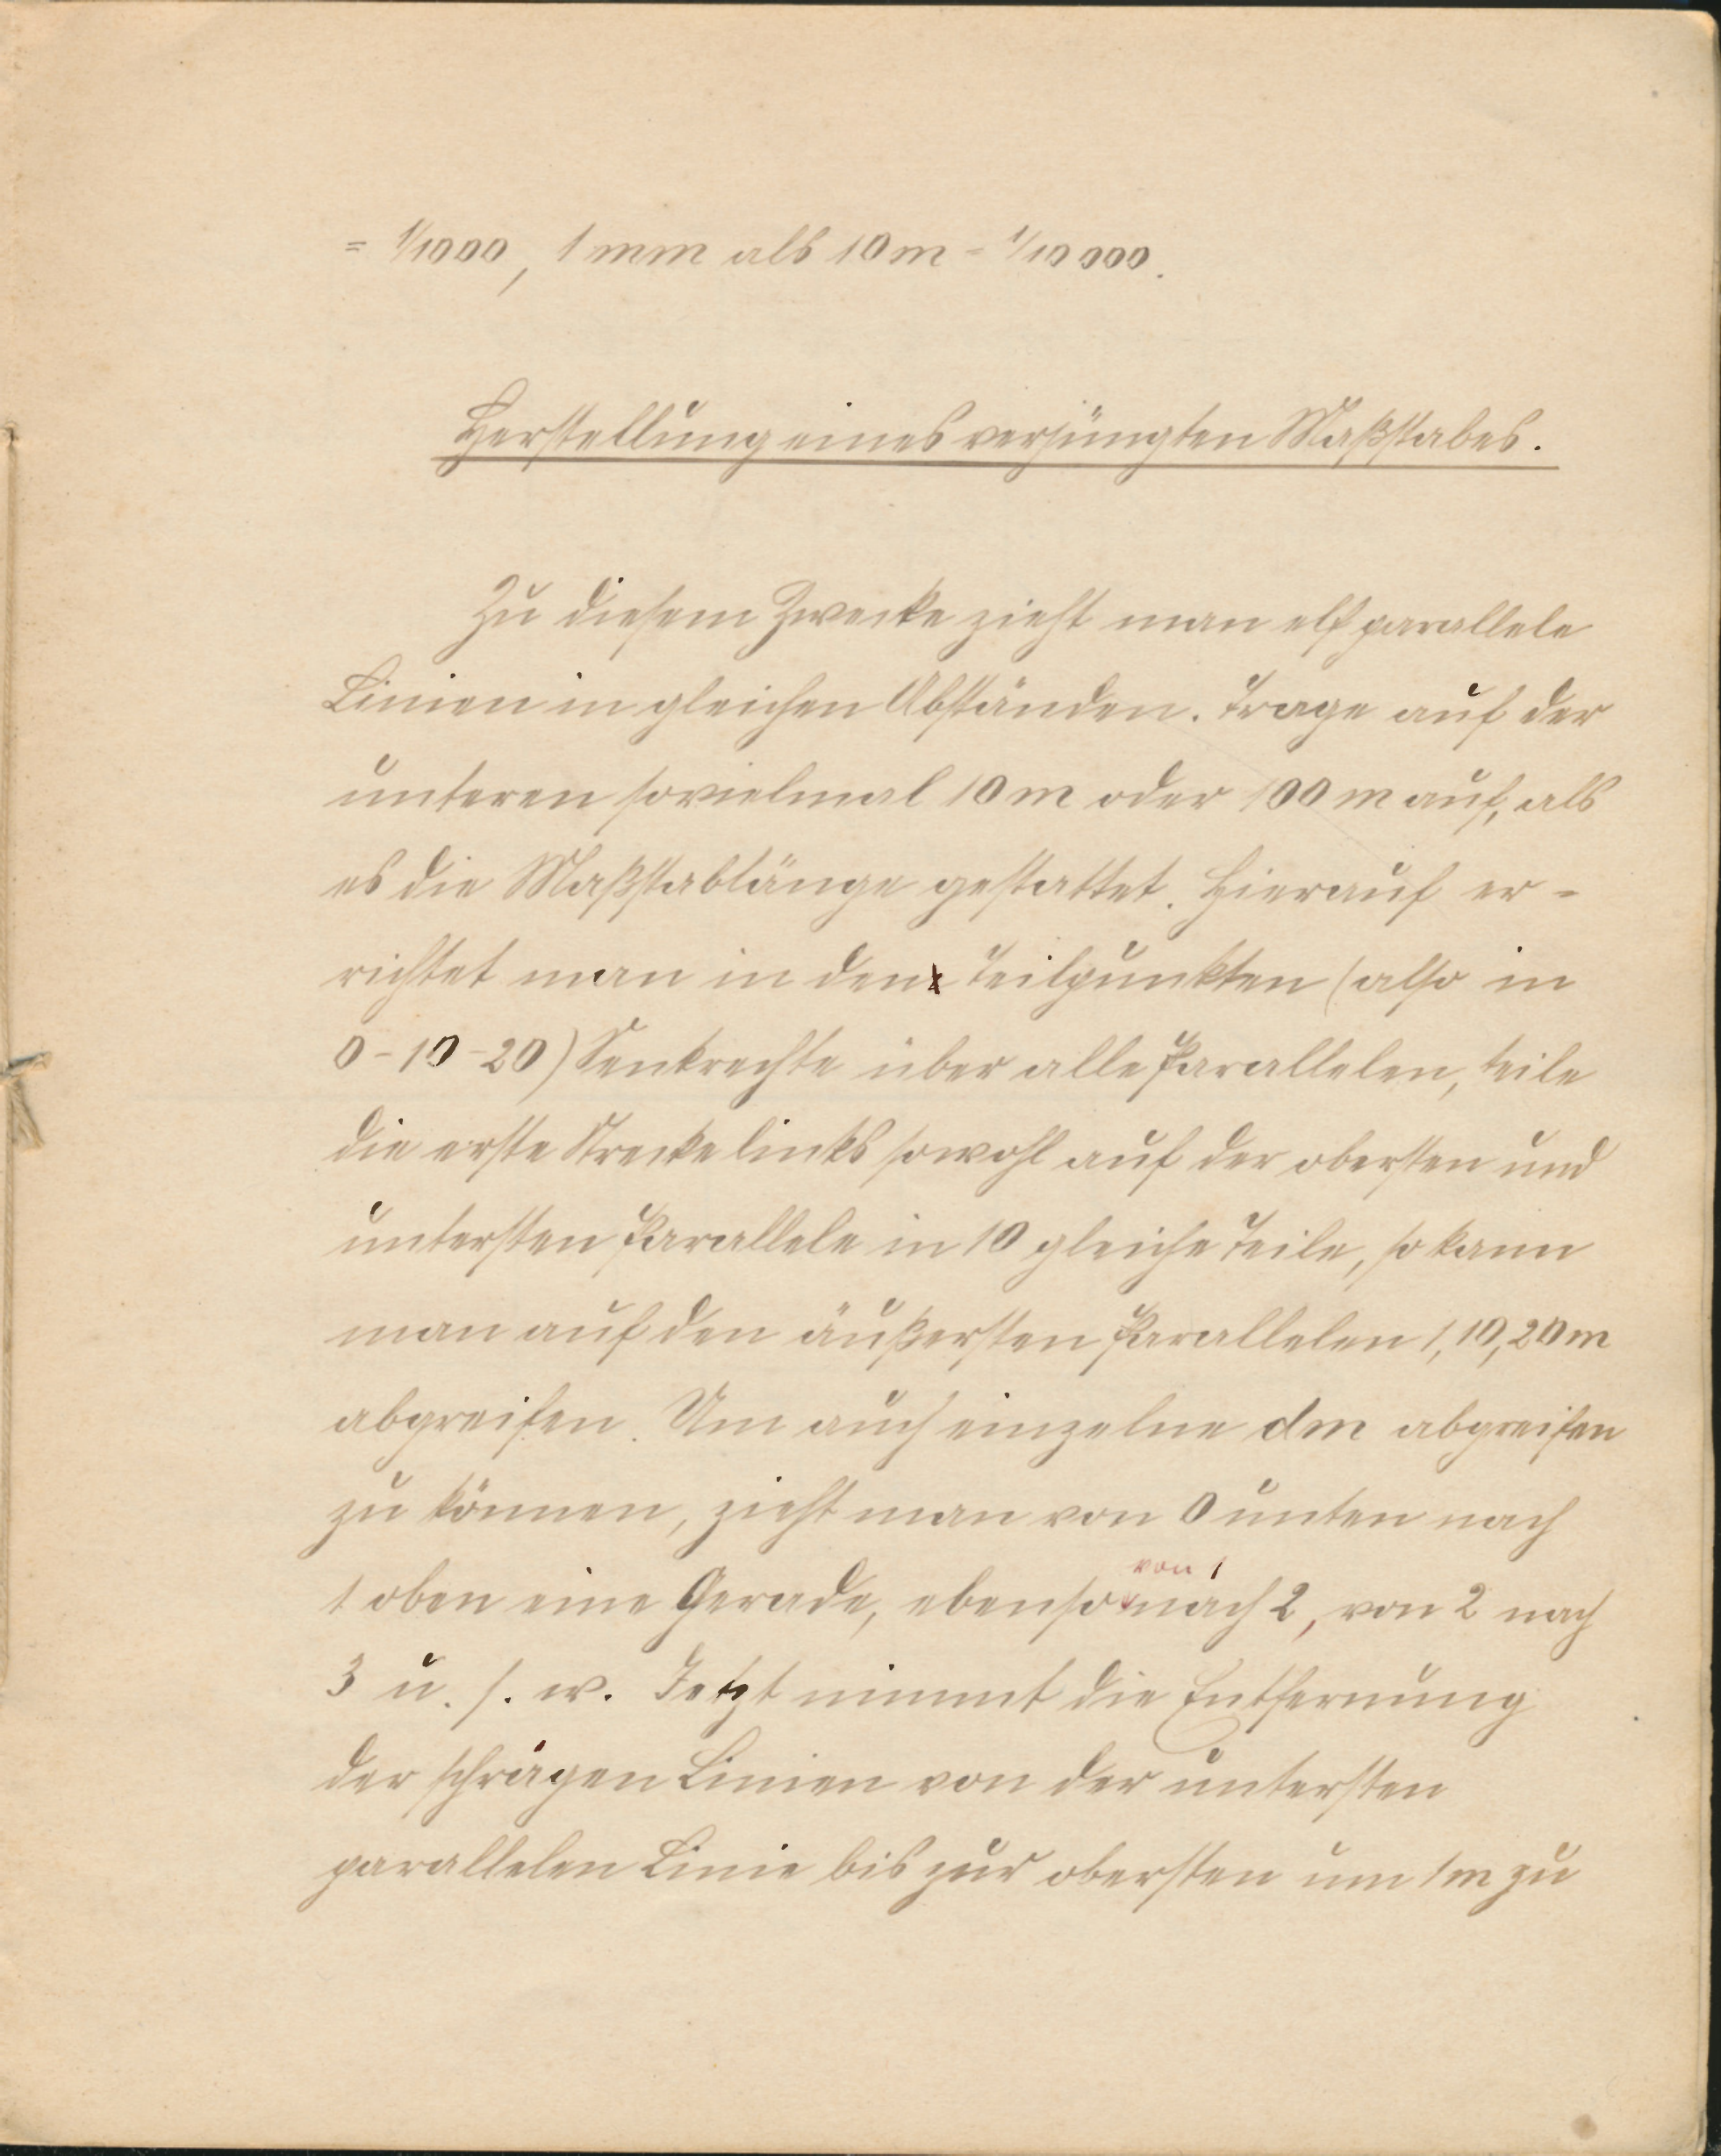 = 1/1000, 1 mm als 10 m = 1/10 000.
Herstellung eines verjüngten Maßstabes.
Zu diesem Zwecke zieht man elf parallele
Linien in gleichen Abständen. Trage auf der
unteren sovielmal 10 m oder 100 m auf, als
es die Maßstablänge gestattet. Hierauf er-
richtet man in den Teilpunkten (also in
0-10-20) Senkrechte über alle Parallelen, teile
die erste Strecke links sowohl auf der obersten und
untersten Parallele in 10 gleiche Teile, so kann
man auf den äußersten Parallelen 1, 10, 20 m
abgreifen. Um auch einzelne dm abgreifen
zu können, zieht man von 0 unten nach
1 oben eine Gerade, ebenso von 1 nach 2, von 2 nach
3 u. s. w. Jetzt nimmt die Entfernung
der schrägen Linien von der untersten
parallelen Linie bis zur obersten um 1 m zu